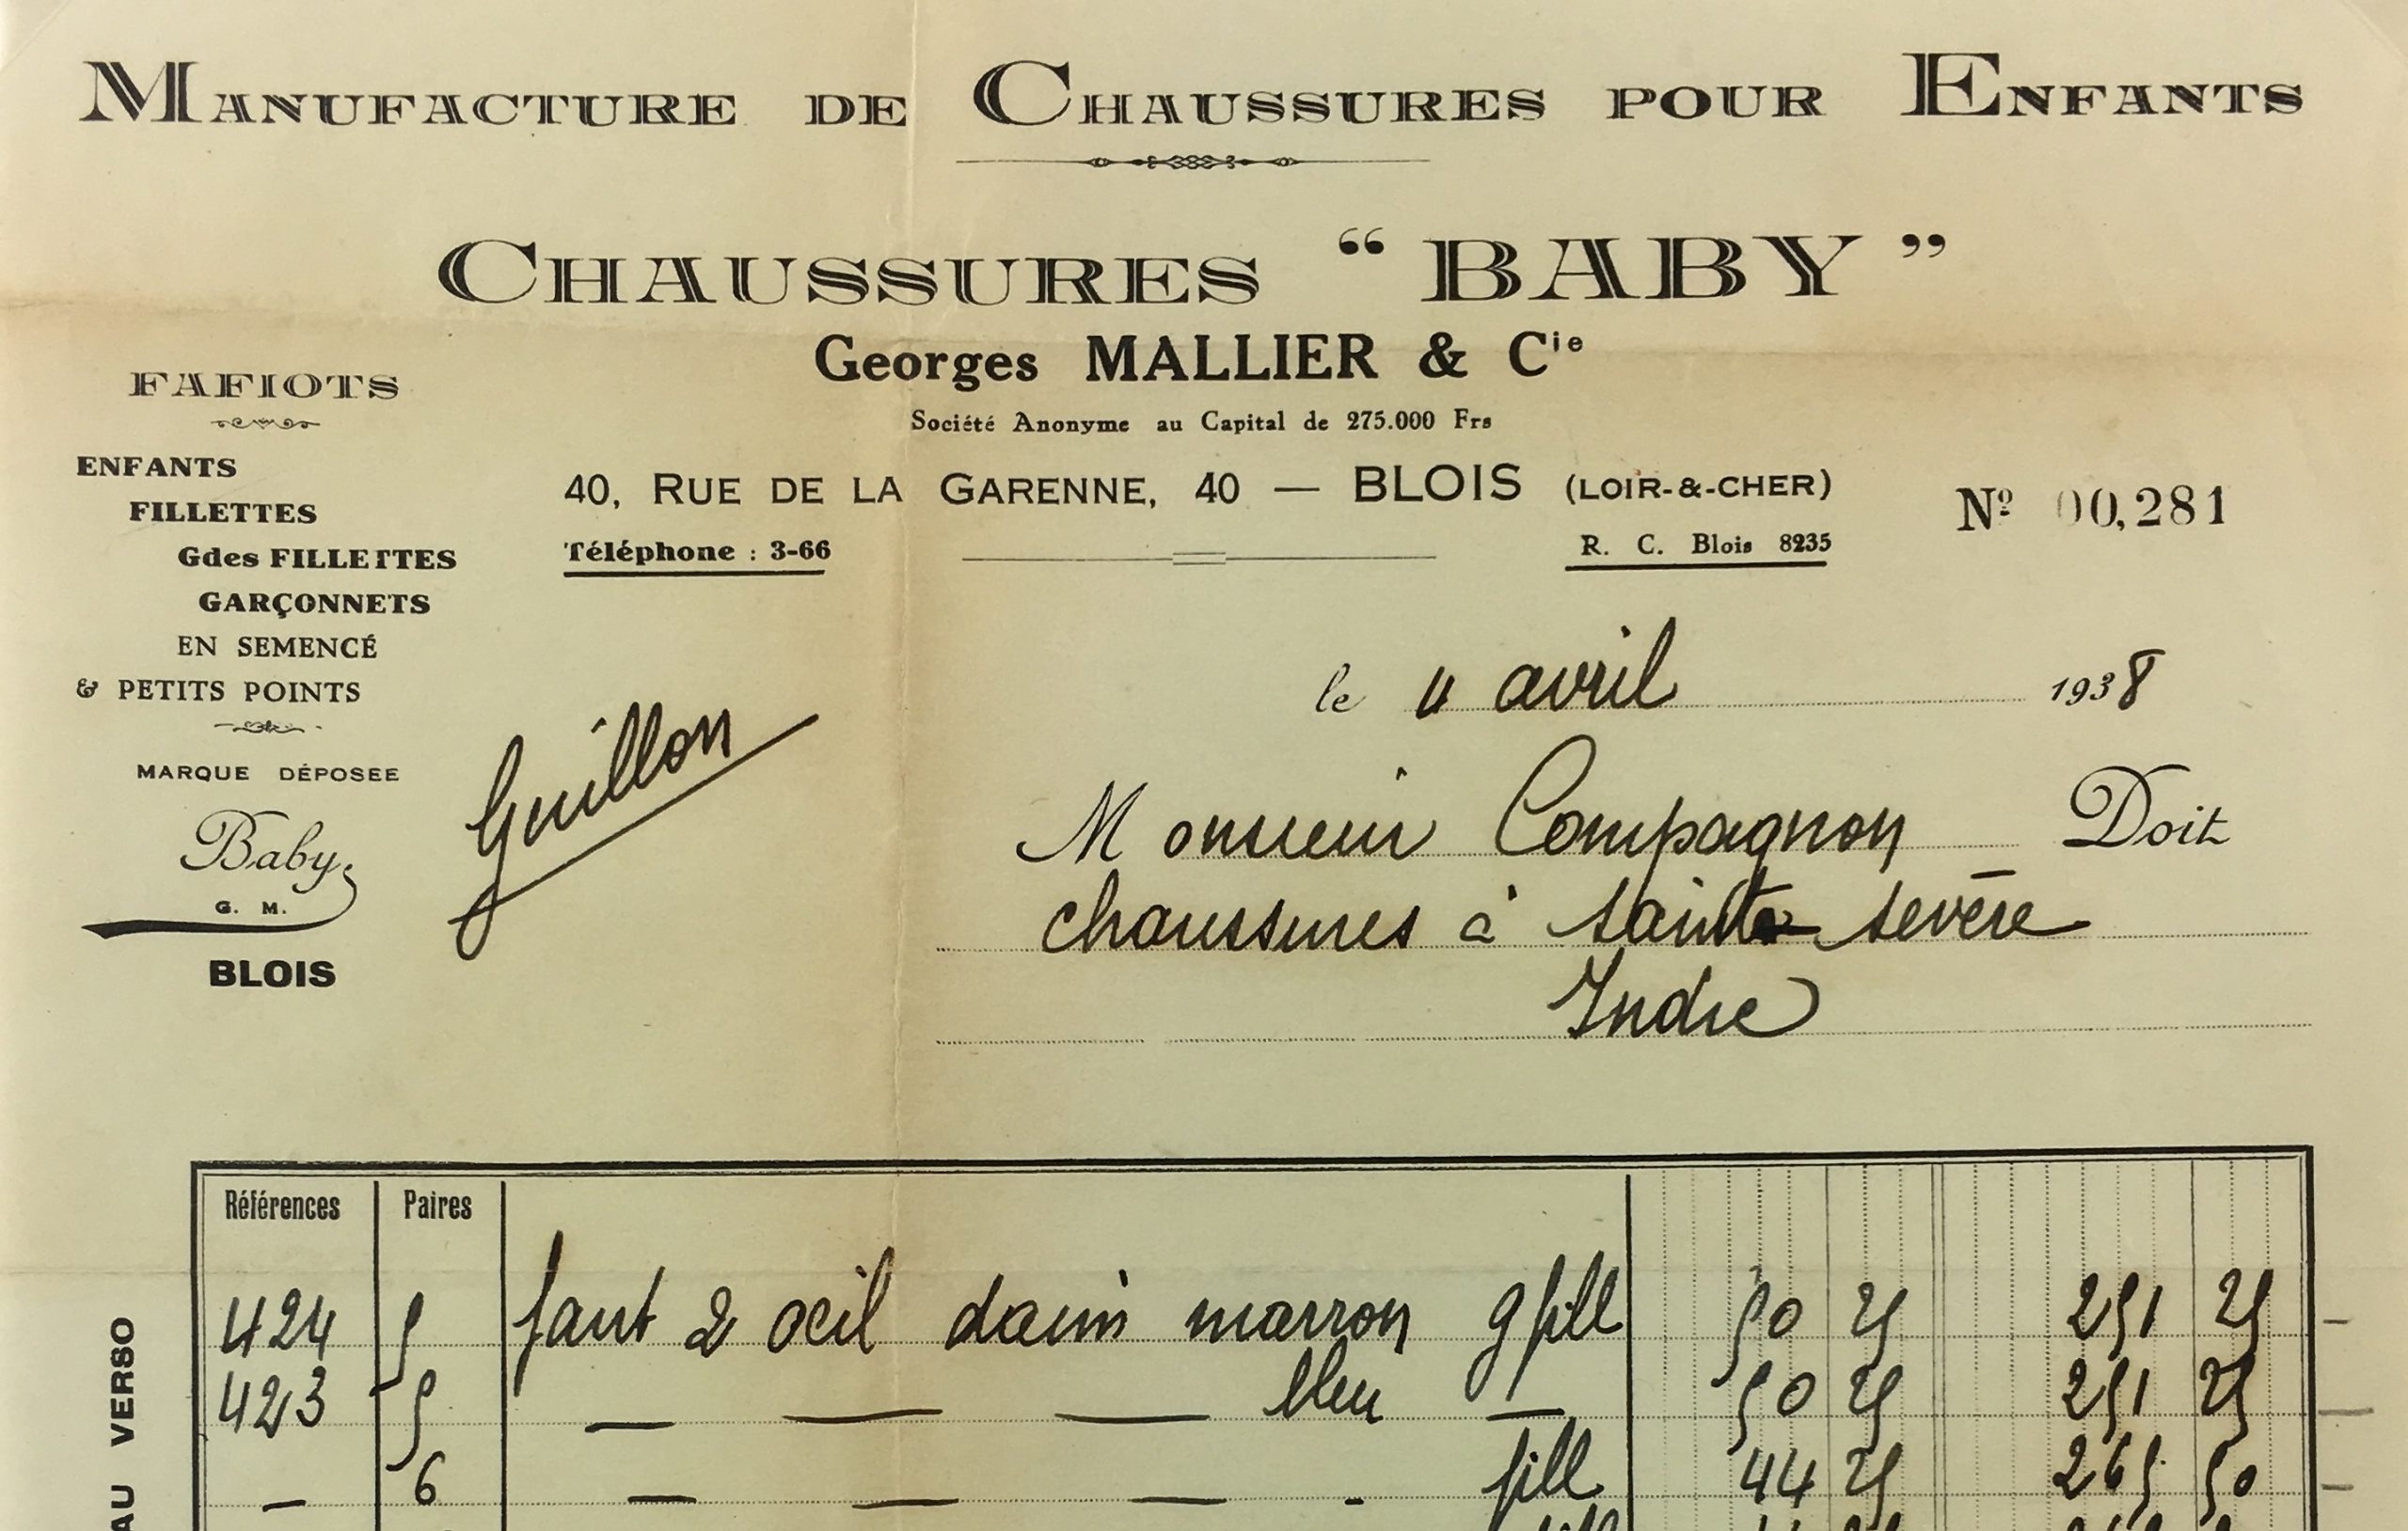 MANUFACTURE DE CHAUSSURES POUR ENFANTS
CHAUSSURES “BABY”
Georges MALLIER & Cie
Société Anonyme au Capital de 275.000 Frs
40, RUE DE LA GARENNE, 40 — BLOIS (LOIR-&-CHER)
Téléphone : 3-66
R. C. Blois 8235
Nº 00,281
FAFIOTS
ENFANTS
FILLETTES
Gdes FILLETTES
GARÇONNETS
EN SEMENCÉ
& PETITS POINTS
MARQUE DÉPOSEE
Baby
G. M.
BLOIS
Guillon
le 4 avril 1938
Monsieur Compagnon Doit
chaussures à Sainte Sévère
Indre
Références Paires
424 5 fant 2 oeil daim marron g fill 50 25 251 25
423 5 — — — bleu — 50 25 251 25
— 6 — — — - fill 44 25 265 50
AU VERSO